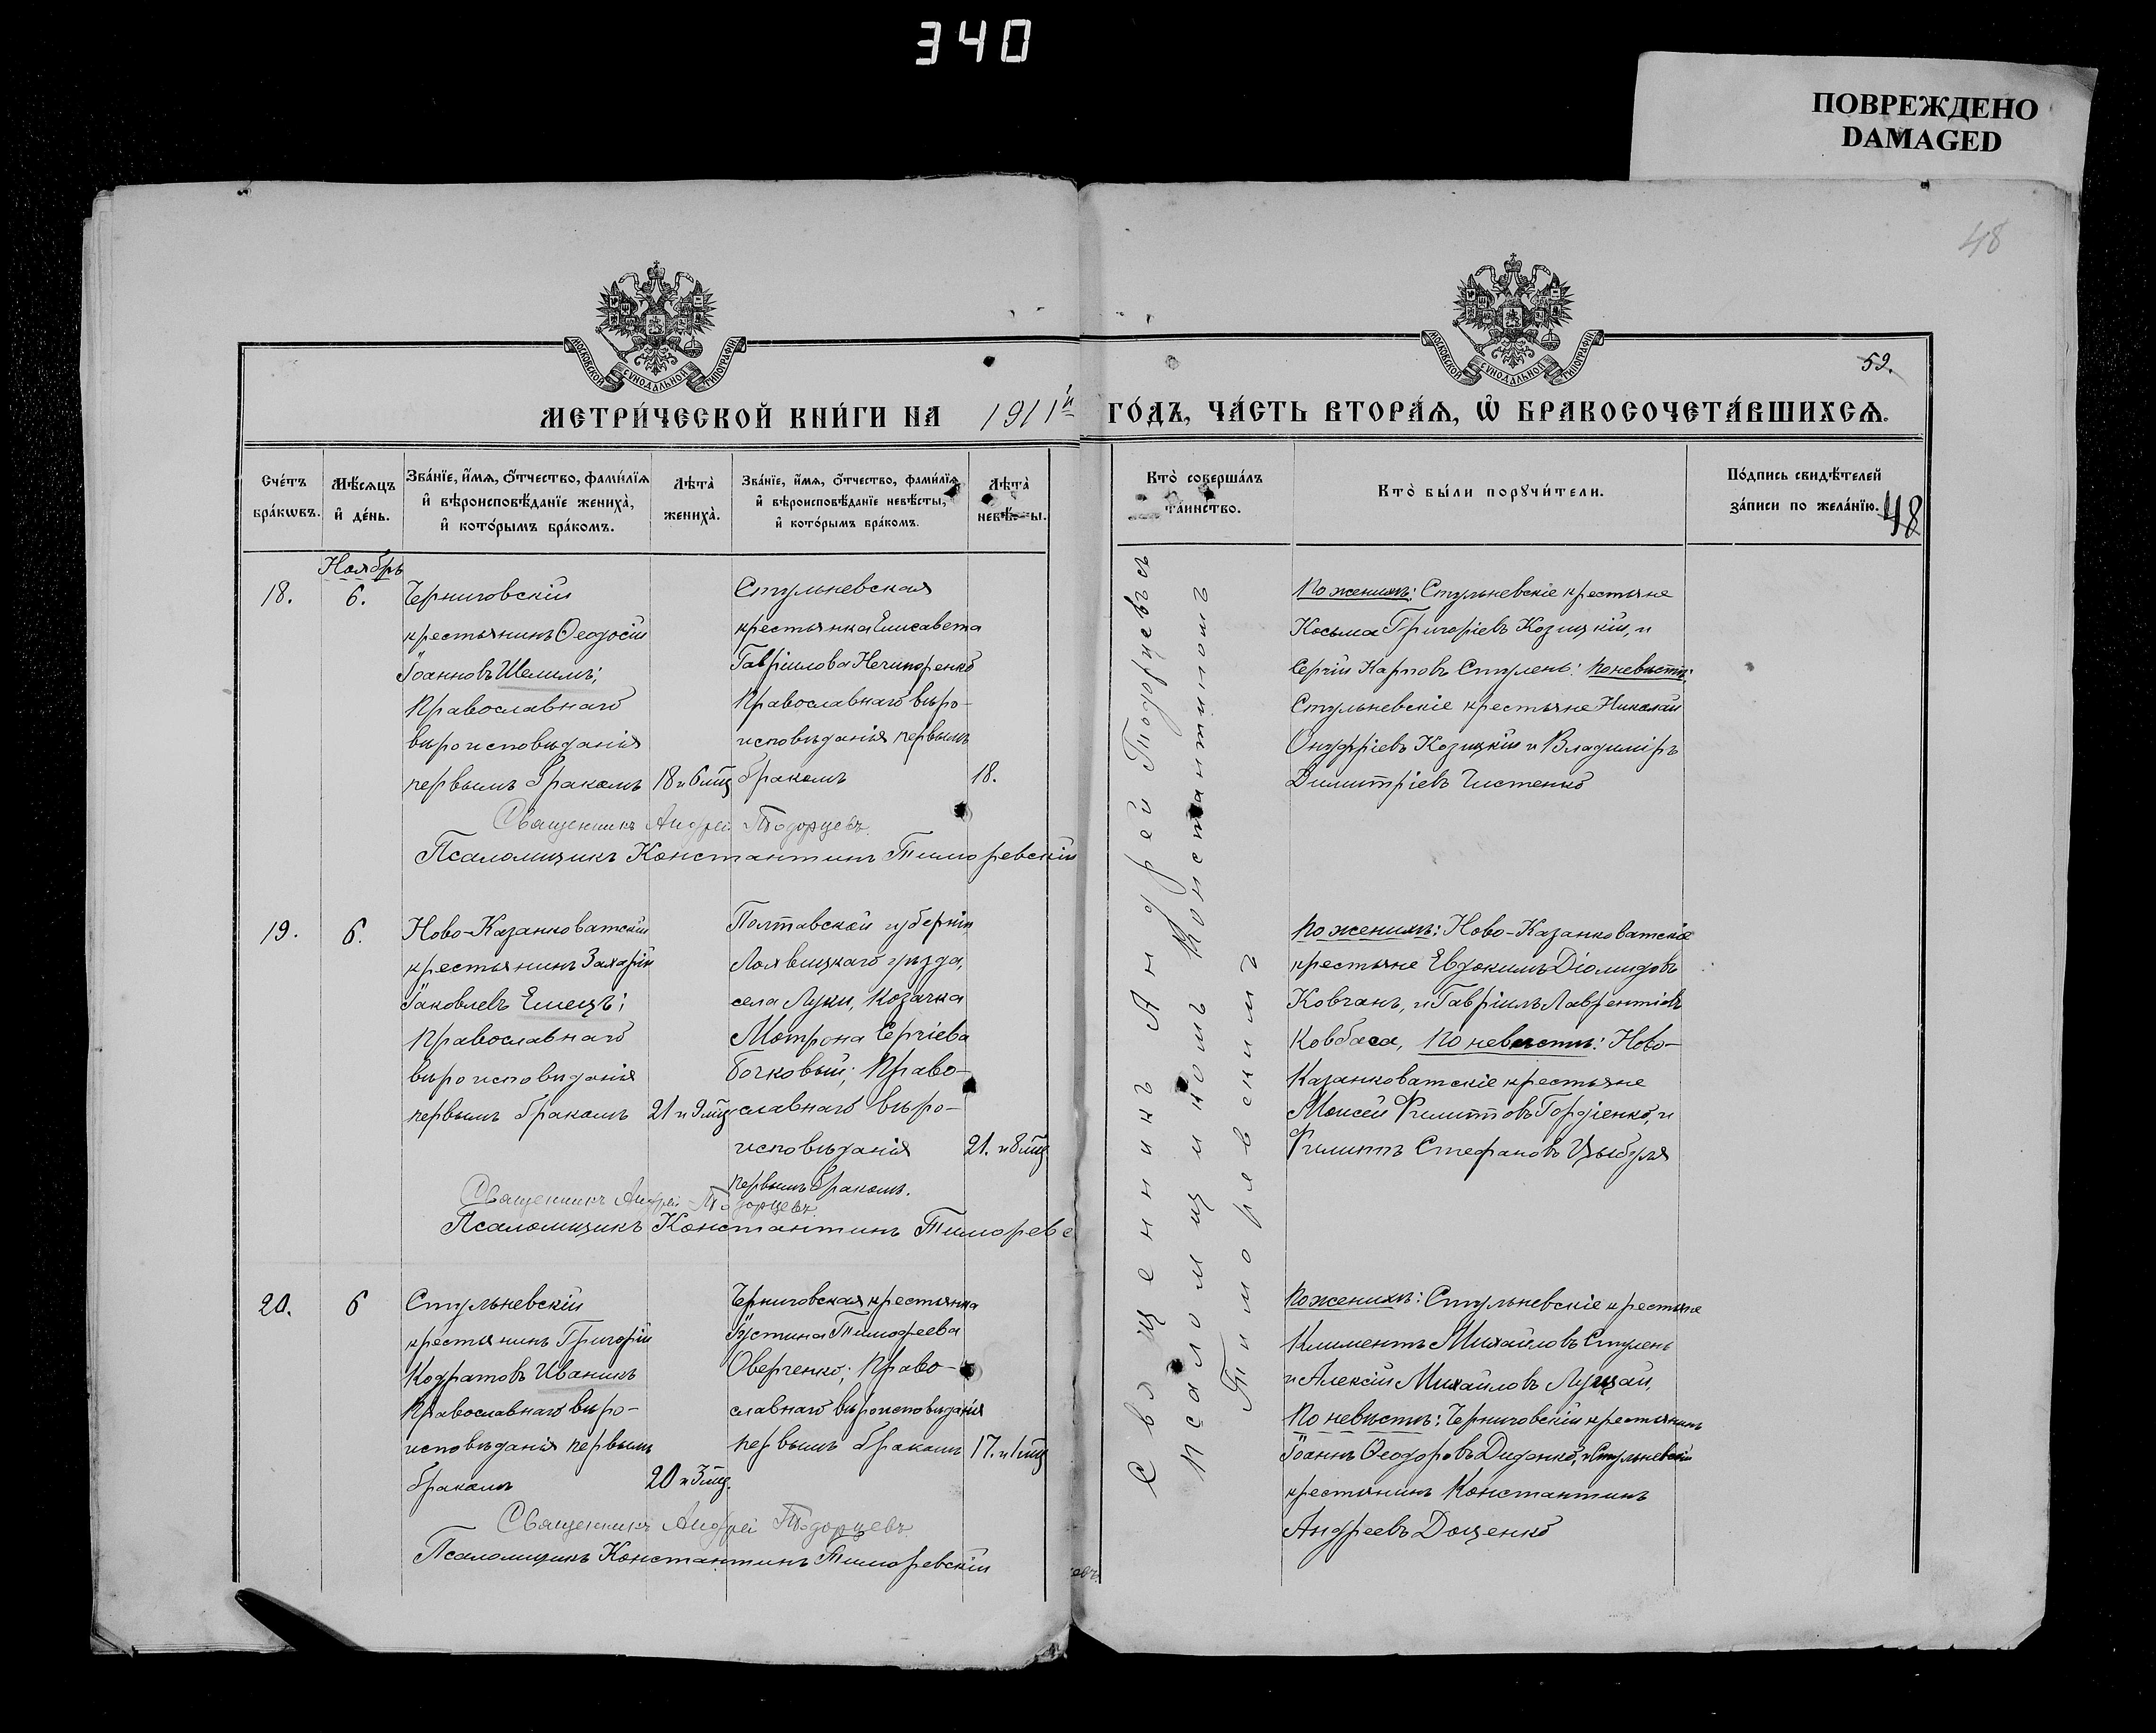 340
ПОВРЕЖДЕНО
DAMAGED
48
МОСКОВСКОЙ СУНОДАЛЬНОЙ ТИПОГРАФІИ
МОСКОВСКОЙ СУНОДАЛЬНОЙ ТИПОГРАФІИ
59.
МЕТРИ́ЧЕСКОЙ КНИ́ГИ НА 1911й ГО́ДЪ, ЧА́СТЬ ВТОРА́Ѧ, Ѡ҆ БРАКОСОЧЕТА́ВШИХСѦ.
Сче́тъ бра́кѡвъ.
Мѣ́сѧцъ и҆ де́нь.
Зва́нїе, и҆́мѧ, ѻ҆́тчество, фами́лїѧ и҆ вѣроисповѣ́данїе жениха̀, и҆ кото́рымъ бра́комъ.
Лѣ́та̀ жениха̀.
Зва́нїе, и҆́мѧ, ѻ҆́тчество, фами́лїѧ и҆ вѣроисповѣ́данїе невѣ́сты, и҆ кото́рымъ бра́комъ.
Лѣ́та̀
Кто̀ соверша́лъ та́инство.
Кто̀ бы́ли порꙋчи́тели.
По́дпись свидѣ́телей за́писи по жела́нїю.
48
Ноябрь
18.
6.
Черниговскій
крестьянинъ Ѳеодосій
Іоанновъ Шелимъ;
Православнаго
вѣроисповѣданія
первымъ бракомъ
18 и 6 мц
Стульневская
крестьянка Елисавета
Гавріилова Нечипоренко
Православнаго вѣро-
исповѣданія первымъ
бракомъ
18.
Священникъ Андрей Тодорцевъ
Псаломщикъ Константинъ Тиморевскій
По женихѣ: Стульневскіе крестьяне
Косьма Григоріевъ Козицкій, и
Сергій Карповъ Ступень: По невѣстѣ:
Стульневскіе крестьяне Николай
Онуфріевъ Козицкій и Владиміръ
Димитріевъ Чистенко
Священникъ Андрей Тодорцевъ
Псаломщикъ Константинъ
Тиморевскій
19.
6.
Ново-Казанковатскій
крестьянинъ Захарій
Іаковлевъ Емецъ;
Православнаго
вѣроисповѣданія
первымъ бракомъ
21 и 9 мц
Полтавской губерніи
Лохвицкаго уѣзда,
села Луки, козачка
Мотрона Сергіева
Бочковый; Право-
славнаго вѣро-
исповѣданія
первымъ бракомъ.
21. и 8 мц
Священникъ Андрей Тодорцевъ
Псаломщикъ Константинъ Тиморевс
По женихѣ: Ново-Казанковатскіе
крестьяне Евдокимъ Діомидовъ
Ковчанъ, и Гавріилъ Лаврентіевъ
Ковбаса, По невѣстѣ: Ново-
Казанковатскіе крестьяне
Моисей Филипповъ Гордіенко, и
Филиппъ Стефановъ Цыбуля
20.
6
Стульневскій
крестьянинъ Григорій
Кодратовъ Иваникъ
Православнаго вѣро-
исповѣданія первымъ
бракомъ
20 и 3 мц.
Черниговская крестьянка
Іустина Тимофеева
Оверченко; Право-
славнаго вѣроисповѣданія
первымъ бракомъ
17. и 1 мц
Священникъ Андрей Тодорцевъ
Псаломщикъ Константинъ Тиморевскій
По женихѣ: Стульневскіе крестьяне
Климентъ Михайловъ Ступень
и Алексій Михайловъ Луцай,
По невѣстѣ: Черниговскій крестьянинъ
Іоаннъ Ѳеодоровъ Диденко, и Стульневскій
крестьянинъ Константинъ
Андреевъ Доценко